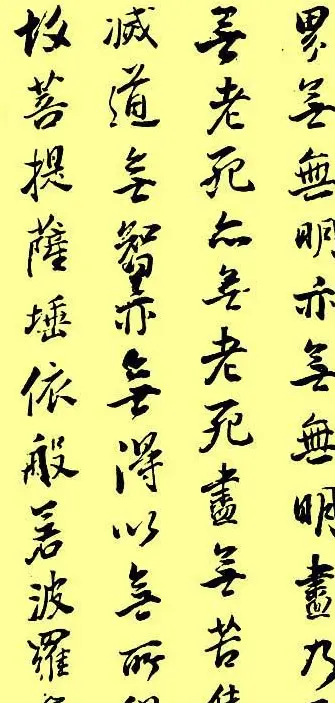 界無無明亦無無明盡乃
無老死亦無老死盡無苦
滅道無智亦無得以無所
故菩提薩埵依般若波羅